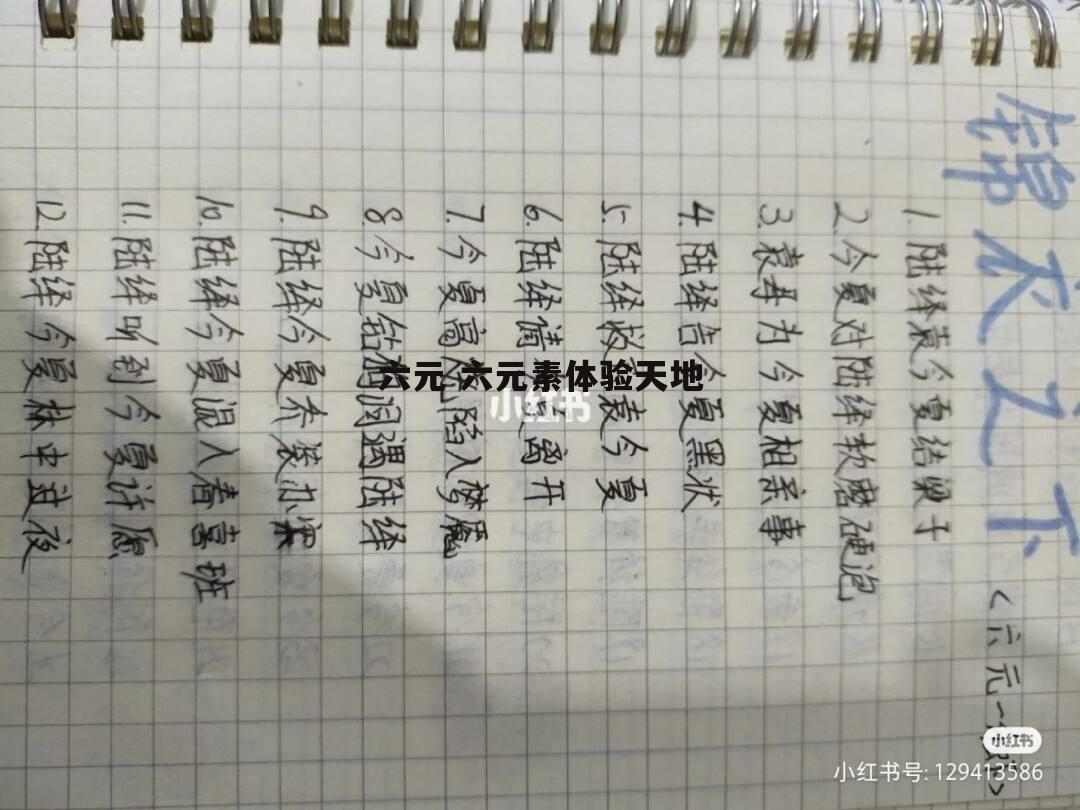 锦衣之下 <六元一
1. 陆绎袁今夏结梁子
2. 今夏对陆绎软磨硬泡
3. 袁母为今夏相亲事
4. 陆绎告今夏黑状
5. 陆绎救袁今夏
6. 陆绎请夏离开
7. 今夏高陷入梦魇
8. 今夏钻狗洞遇陆绎
9. 陆绎今夏乔装办案
10. 陆绎今夏混入春喜班
11. 陆绎听到今夏许愿
12. 陆绎今夏林中过夜
六元 六元素体验天地
小红书
小红书
小红书号: 129413586